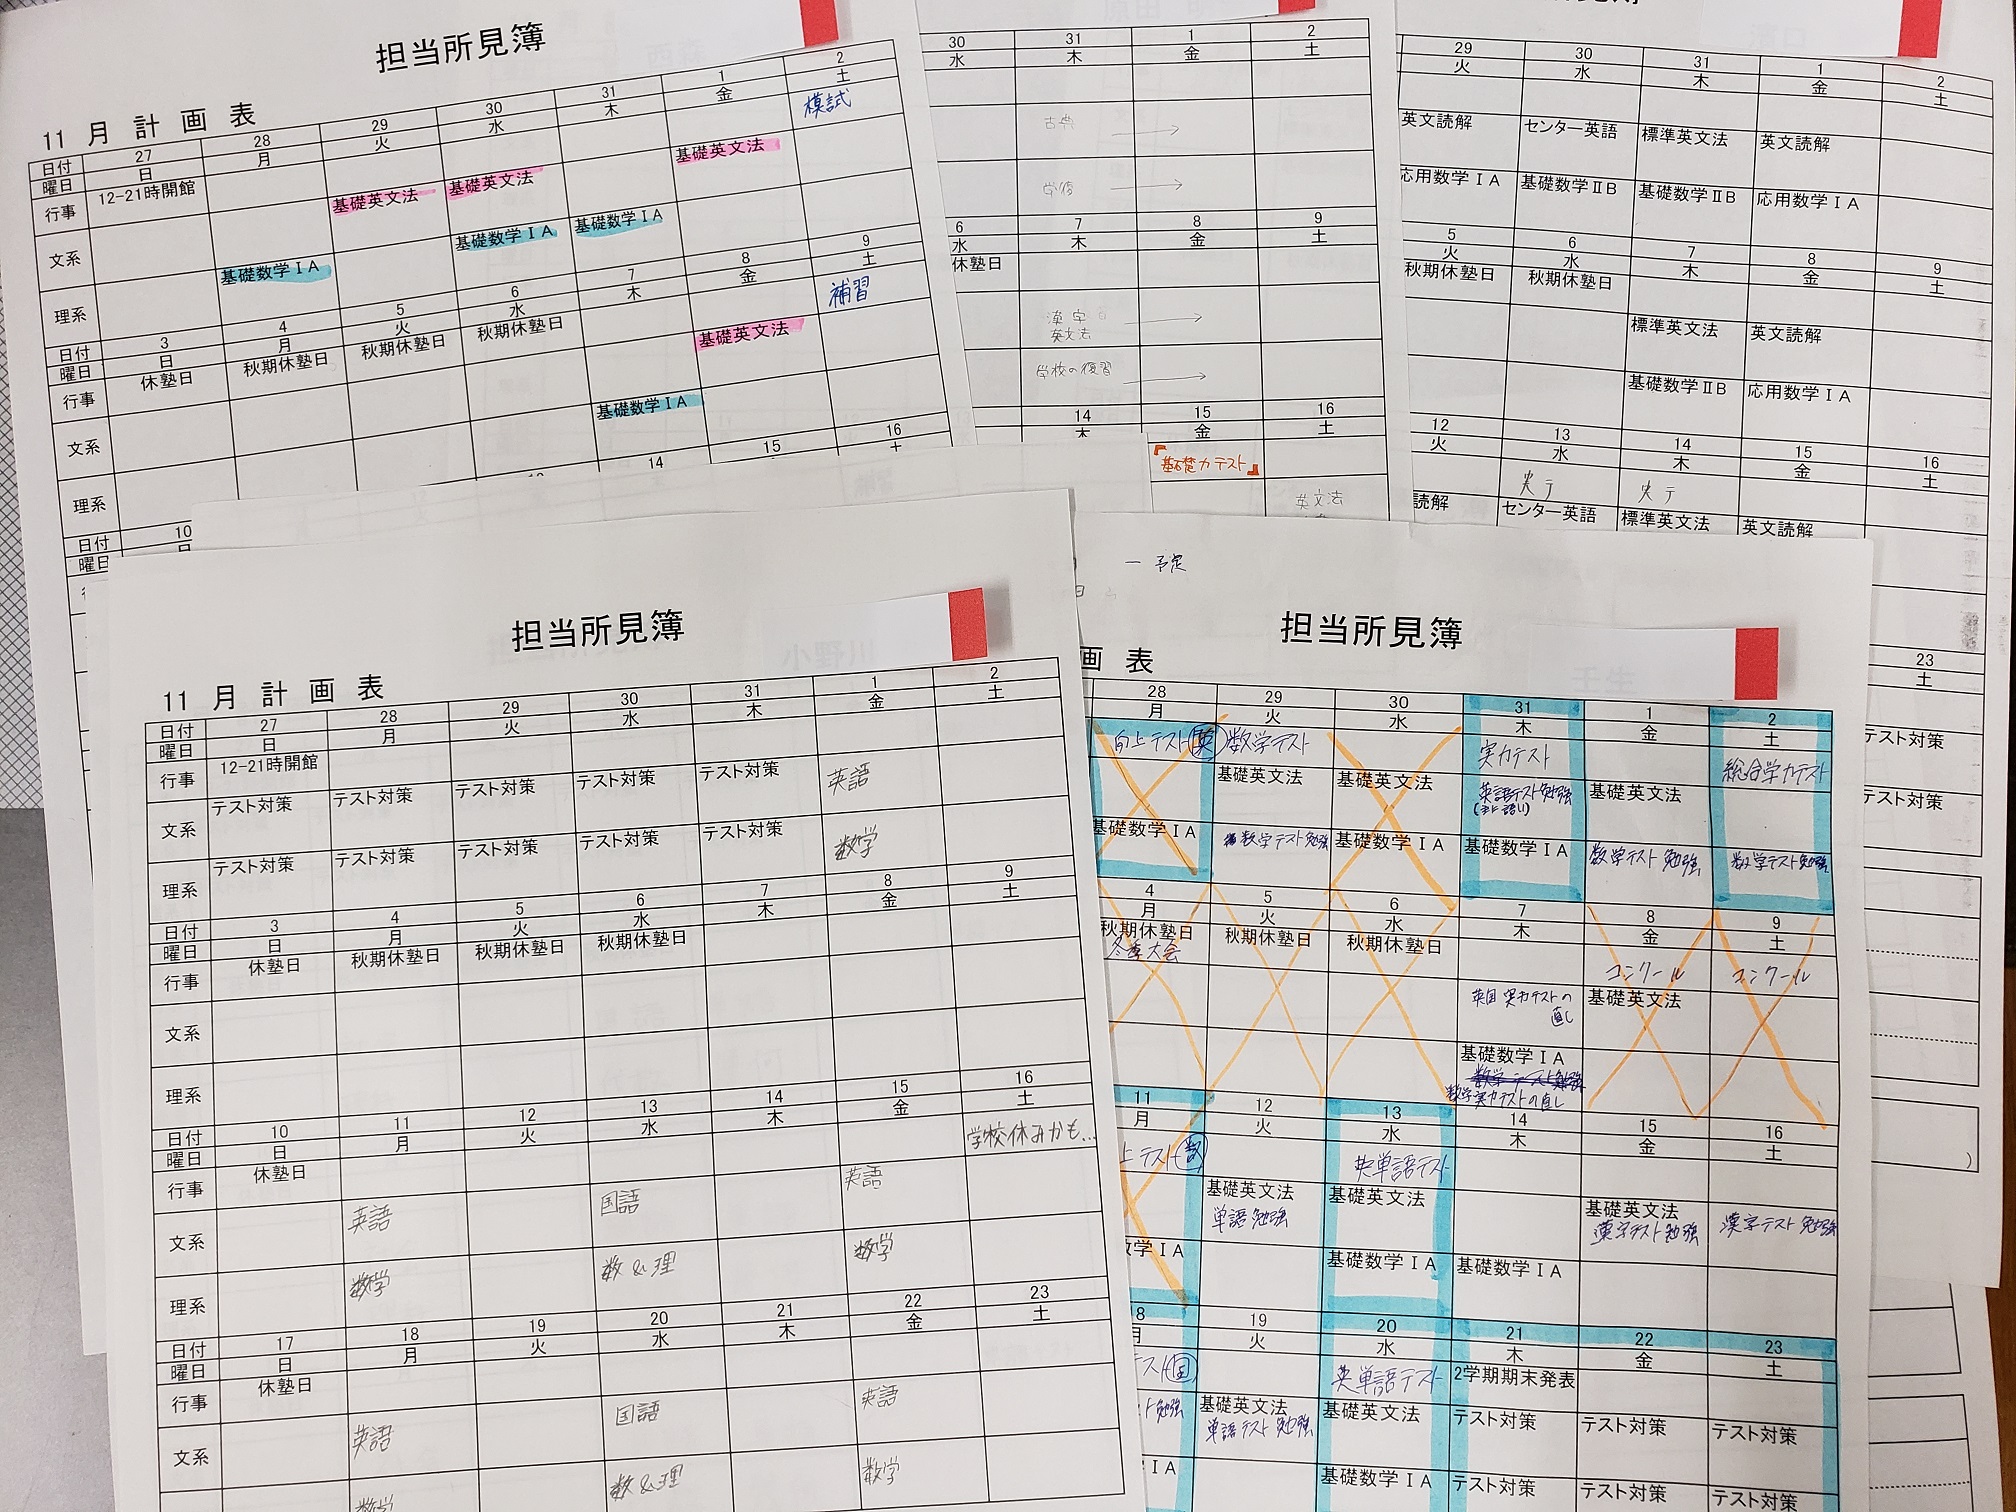 担当所見簿
11 月 計 画 表
日付 27 28 29 30 31 1 2
曜日 日 月 火 水 木 金 土
行事 12-21時開館 模試
文系 基礎英文法 基礎英文法 基礎英文法
理系 基礎数学ⅠA 基礎数学ⅠA 基礎数学ⅠA
日付 3 4 5 6 7 8 9
曜日 日 月 火 水 木 金 土
行事 休塾日 秋期休塾日 秋期休塾日 秋期休塾日 補習
文系 基礎英文法
理系 基礎数学ⅠA
日付 10 14 15 16
曜日
30 31 1 2
水 木 金 土
古典
学校
6 7 8 9
水 木 金 土
休塾日
漢字
英文法
学校の復習
14 15 16
木 金 土
『基礎力テスト』
英文法
29 30 31 1 2
火 水 木 金 土
英文読解 センター英語 標準英文法 英文読解
応用数学ⅠA 基礎数学ⅡB 基礎数学ⅡB 応用数学ⅠA
5 6 7 8 9
火 水 木 金 土
秋期休塾日 秋期休塾日
標準英文法 英文読解
基礎数学ⅡB 応用数学ⅠA
12 13 14 15 16
火 水 木 金 土
実テ 実テ
読解 センター英語 標準英文法 英文読解
23
土
テスト対策
テスト対策
担当所見簿
小野川
11 月 計 画 表
日付 27 28 29 30 31 1 2
曜日 日 月 火 水 木 金 土
行事 12-21時開館
文系 テスト対策 テスト対策 テスト対策 テスト対策 テスト対策 英語
理系 テスト対策 テスト対策 テスト対策 テスト対策 テスト対策 数学
日付 3 4 5 6 7 8 9
曜日 日 月 火 水 木 金 土
行事 休塾日 秋期休塾日 秋期休塾日 秋期休塾日
文系
理系
日付 10 11 12 13 14 15 16
曜日 日 月 火 水 木 金 土
行事 休塾日 学校休みかも…
文系 英語 国語 英語
理系 数学 数&理 数学
日付 17 18 19 20 21 22 23
曜日 日 月 火 水 木 金 土
行事 休塾日
文系 英語 国語 英語
数学 数&理 数学
― 予定
担当所見簿
壬生
画 表
28 29 30 31 1 2
月 火 水 木 金 土
向上テスト(英) 数学テスト 実力テスト 総合学力テスト
基礎英文法 基礎英文法 英語テスト勉強 基礎英文法
基礎数学ⅠA 数学テスト勉強 基礎数学ⅠA 基礎数学ⅠA 数学テスト勉強 数学テスト勉強
4 5 6 7 8 9
月 火 水 木 金 土
秋期休塾日 秋期休塾日 秋期休塾日 コンクール コンクール
冬季大会
英国 実力テストの直し 基礎英文法
基礎数学ⅠA
数学テスト勉強
数学実力テストの直し
11 12 13 14 15 16
月 火 水 木 金 土
上テスト(数) 英単語テスト
基礎英文法 基礎英文法 基礎英文法
単語勉強 漢字テスト勉強 漢字テスト勉強
数学ⅠA 基礎数学ⅠA 基礎数学ⅠA
8 19 20 21 22 23
月 火 水 木 金 土
テスト(国) 英単語テスト 2学期期末発表
ト勉強 基礎英文法 基礎英文法 テスト対策 テスト対策 テスト対策
単語テスト勉強
ⅠA 基礎数学ⅠA テスト対策 テスト対策 テスト対策